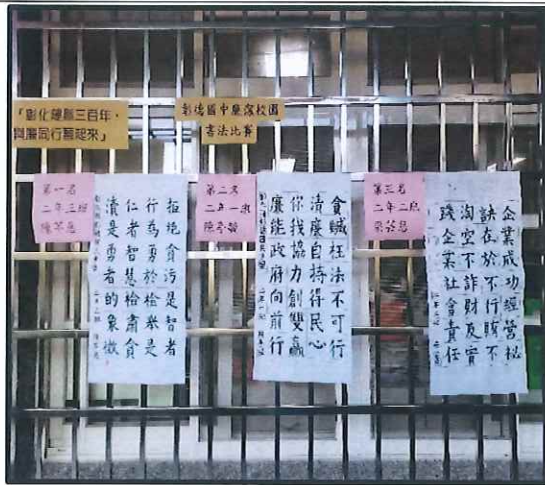 「彰化建縣三百年，
與廉同行舞起來」
彰德國中廉潔校園
書法比賽
第一名
二年三班
拒絕貪污是智者
行為勇於檢舉是
仁者智慧檢肅貪
瀆是勇者的象徵
第二名
二年一班
貪贓枉法不可行
清廉自持得民心
你我協力創雙贏
廉能政府向前行
第三名
二年二班
企業成功經營秘
訣在於不行賄不
淘空不詐財及實
踐企業社會責任